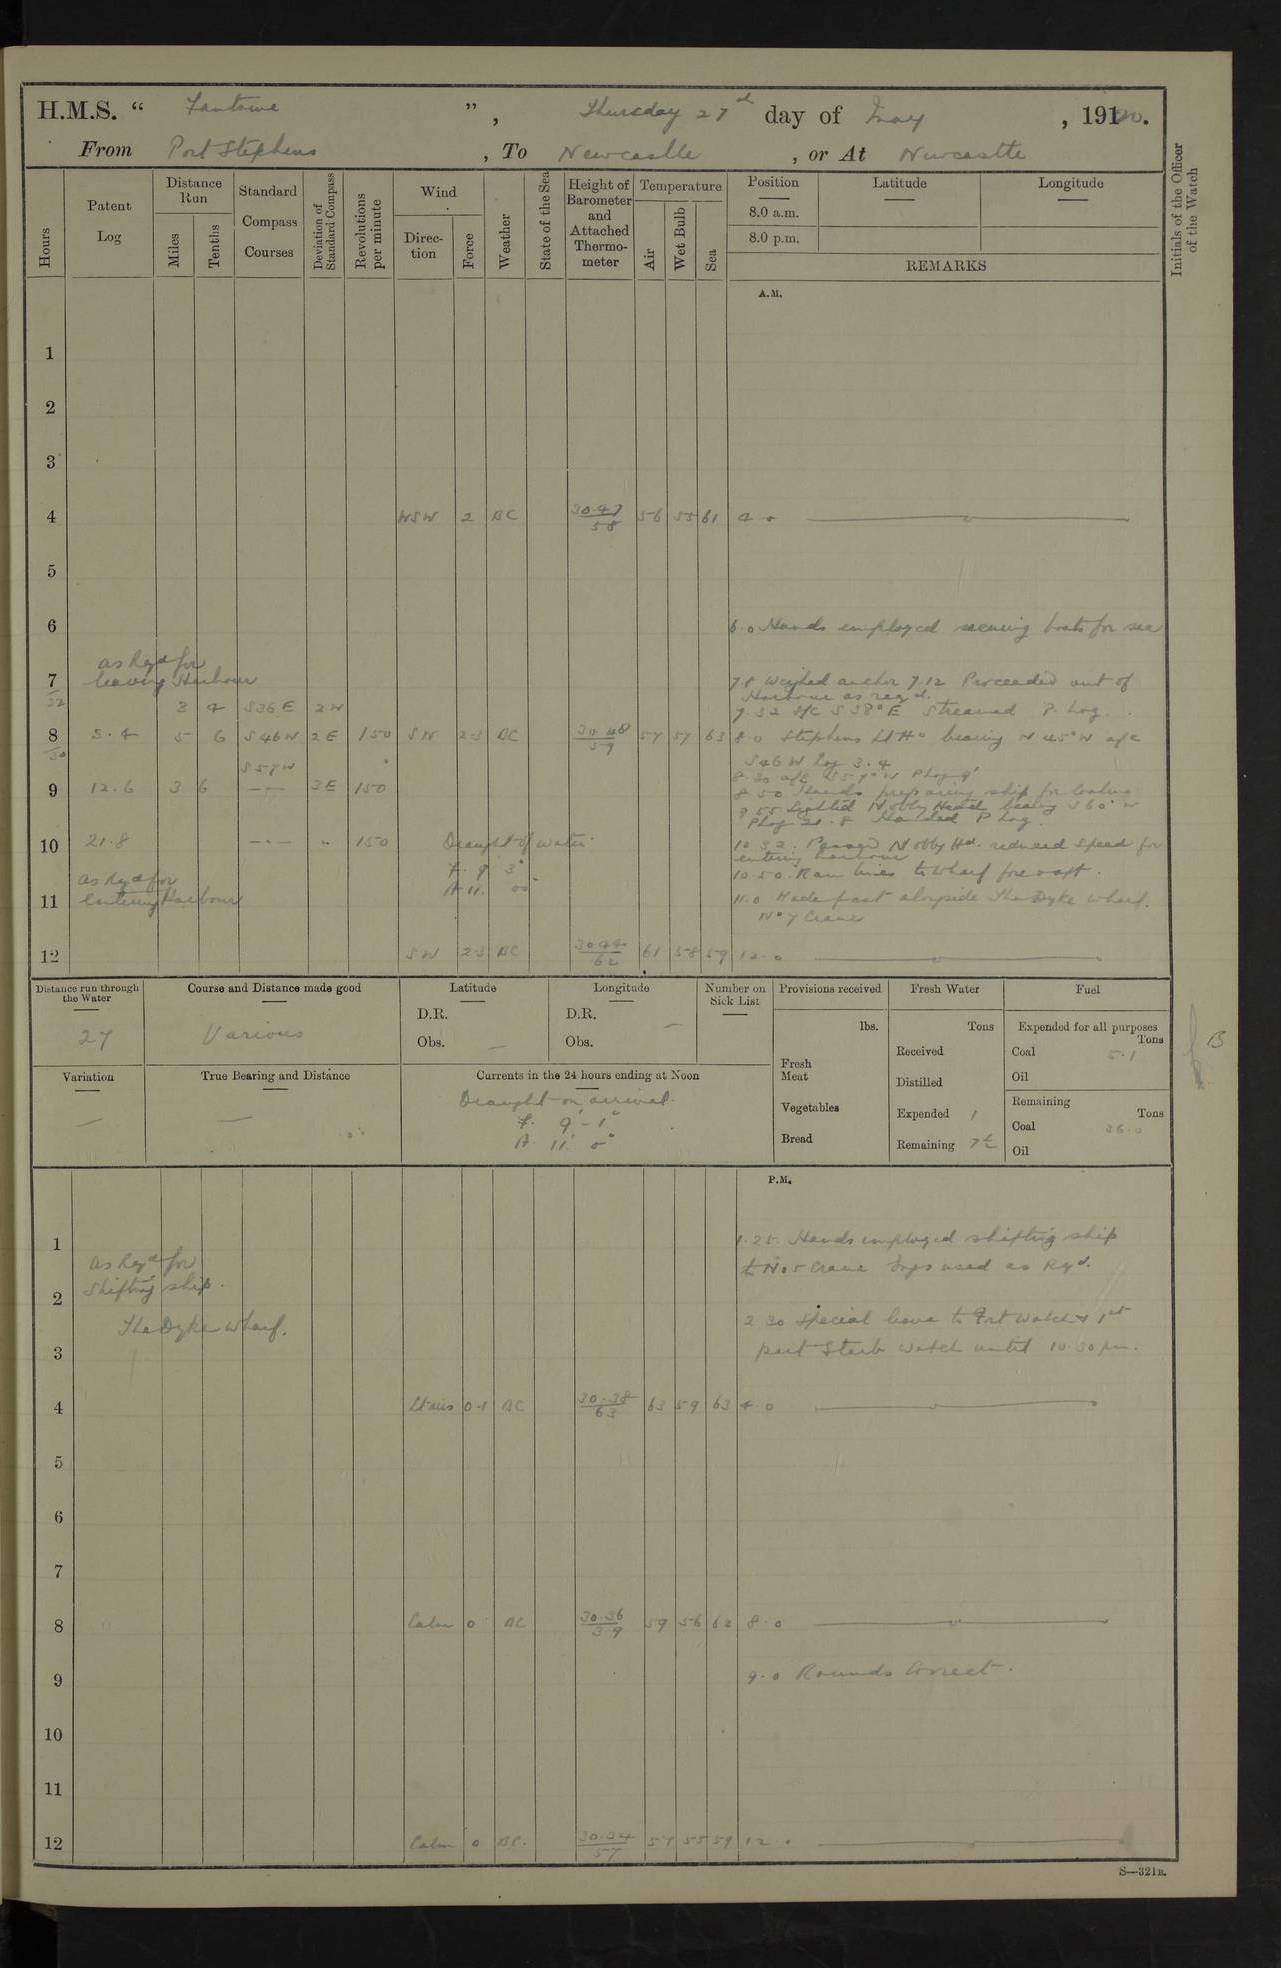 H.M.S. “ Fantome ”, Thursday 27th day of May, 1920.
From Port Stephens, To Newcastle, or At Newcastle
Hours
Patent Log
Distance Run
Miles
Tenths
Standard Compass Courses
Deviation of Standard Compass
Revolutions per minute
Wind
Direc-tion
Force
Weather
State of the Sea
Height of Barometer and Attached Thermo-meter
Temperature
Air
Wet Bulb
Sea
Position
8.0 a.m.
8.0 p.m.
Latitude
Longitude
REMARKS
Initials of the Officer of the Watch
A.M.
1
2
3
4 WSW 2 BC 30.47/58 56 55 61 4.0
5
6 6.0 Hands employed securing boats for sea
as Reqd for
7 leaving Harbour 7.8 Weighed anchor 7.12 Proceeded out of
Harbour as reqd.
32 3 4 S36E 2W 7.32 S/C S38°E Streamed P. Log.
8 3.4 5 6 S46W 2E 150 SW 2-3 BC 30.48/59 57 57 63 8.0 Stephens Lt Ho bearing N45°W a/c
30 S57W S46W Log 3.4
8.30 a/c S57°W P Log 9'
9 12.6 3 6 -"- 3E 150 8.50 Hands preparing ship for coaling
9.55 Sighted Nobby Head bearing S60°W
P Log 21.8 Handed P Log.
10 21.8 -"- " 150 Draught of water. 10.32. Passed Nobby Hd. reduced speed for
entering harbour
F. 9' 3"
as Reqd for 10.50. Ran lines to Wharf fore & aft.
A 11. 00"
11 Entering Harbour 11.0 Made fast alongside The Dyke wharf.
No 7 Crane
12 SW 2-3 BC 30.44/62 61 58 59 12.0
Distance run through the Water
27
Course and Distance made good
Various
Latitude
D.R.
Obs. —
Longitude
D.R. —
Obs.
Number on Sick List
Provisions received
lbs.
Fresh Meat
Vegetables
Bread
Fresh Water
Tons
Received
Distilled
Expended 1
Remaining 7½
Fuel
Expended for all purposes
Tons
Coal 5.1
Oil
Remaining
Tons
Coal 36.0
Oil
B
Variation
—
True Bearing and Distance
—
Currents in the 24 hours ending at Noon
Draught on arrival.
F. 9' - 1"
A. 11' 0"
P.M.
1 1.25. Hands employed shifting ship
as Reqd for to No 5 Crane tugs used as Reqd.
Shifting ship.
2
The Dyke wharf. 2 30 Special leave to Port Watch & 1st
3 part Starb watch until 10.30 pm.
4 Lt airs 0-1 BC 30.38/63 63 59 63 4.0
5
6
7
8 Calm 0 BC 30.36/59 59 56 60 8.0
9 9.0 Rounds Correct.
10
11
12 Calm 0 BC. 30.34/57 57 55 59 12.0
S—321B.